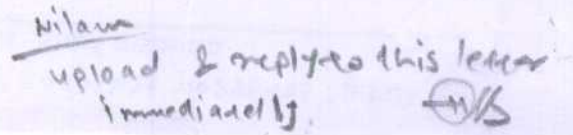 Nilam
upload & reply to this letter
immediately.